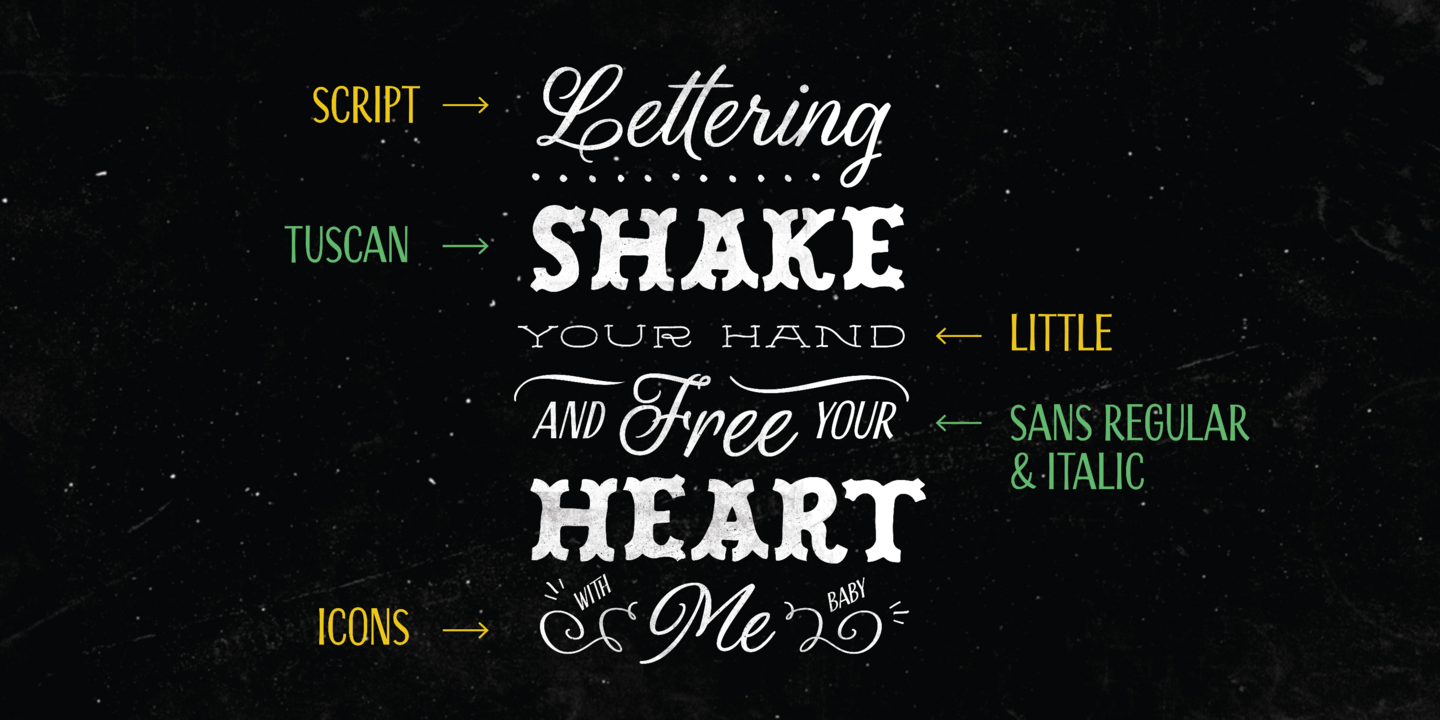 SCRIPT → Lettering
TUSCAN → SHAKE
YOUR HAND ← LITTLE
AND Free YOUR ← SANS REGULAR
& ITALIC
HEART
WITH Me BABY
ICONS →